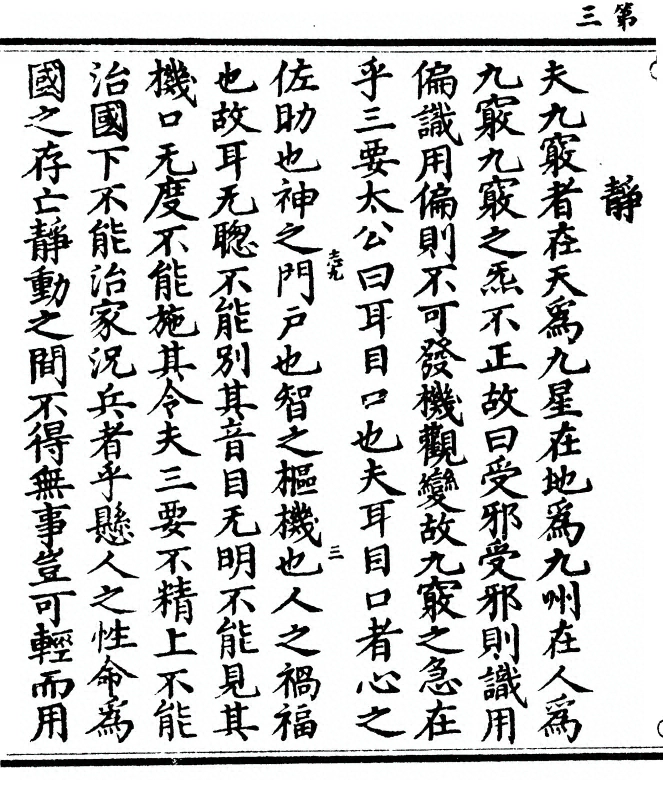 第三
靜
夫九竅者在天為九星在地為九州在人為
九竅九竅之炁不正故曰受邪受邪則識用
偏識用偏則不可發機觀變故九竅之急在
乎三要太公曰耳目口也夫耳目口者心之
佐助也神之門戶也智之樞機也人之禍福
志九
三
也故耳无聰不能別其音目无明不能見其
機口无度不能施其令夫三要不精上不能
治國下不能治家況兵者乎懸人之性命為
國之存亡靜動之間不得無事豈可輕而用